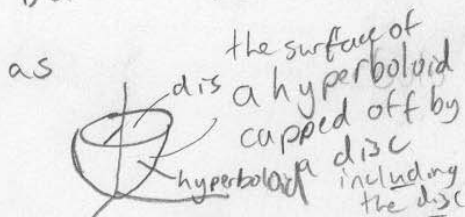 as
dis
the surface of
a hyperboloid
capped off by
a disc
including
the disc
hyperboloid